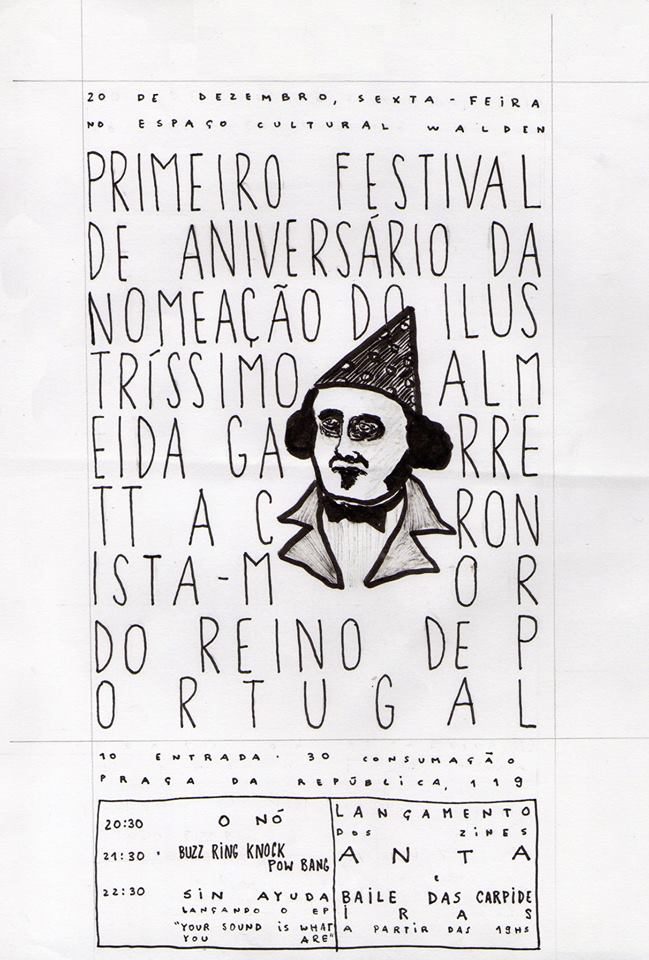 20 DE DEZEMBRO, SEXTA-FEIRA
NO ESPAÇO CULTURAL WALDEN
PRIMEIRO FESTIVAL
DE ANIVERSÁRIO DA
NOMEAÇÃO DO ILUS
TRÍSSIMO ALM
EIDA GARRE
TT A CRON
ISTA-MOR
DO REINO DE P
ORTUGAL
10 ENTRADA · 30 CONSUMAÇÃO
PRAÇA DA REPÚBLICA, 119
20:30 O NÓ
21:30 · BUZZ RING KNOCK
POW BANG
22:30 SIN AYUDA
LANÇANDO O EP
"YOUR SOUND IS WHAT
YOU ARE"
LANÇAMENTO
DOS ZINES
ANTA
E
BAILE DAS CARPIDE
IRAS
A PARTIR DAS 19HS